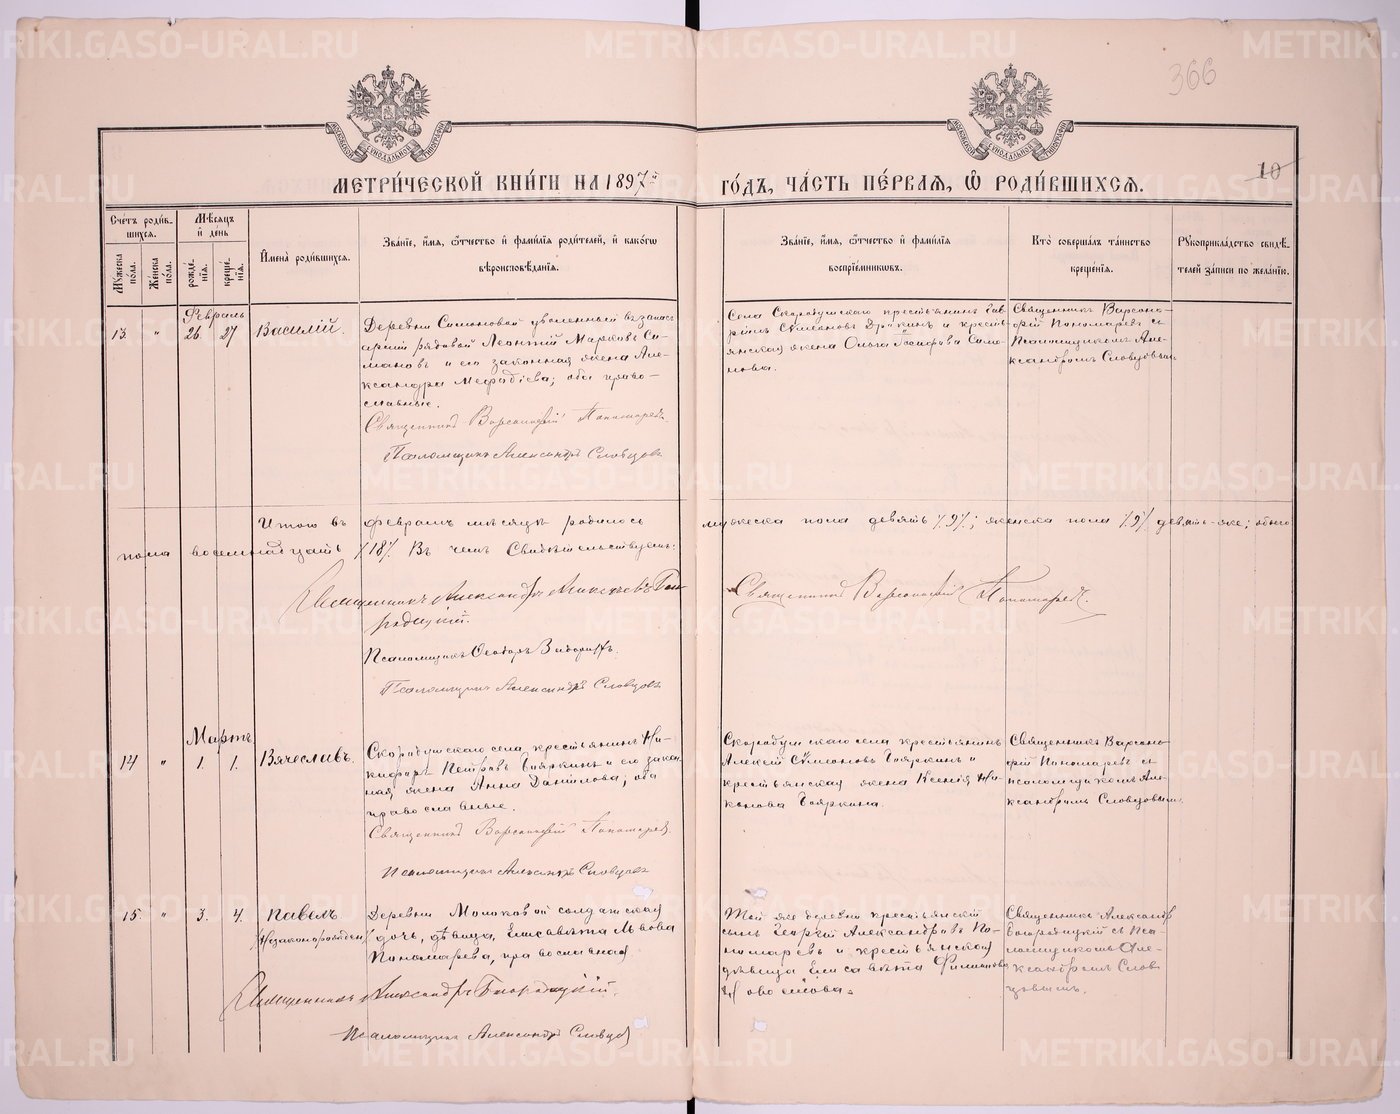 METRIKI.GASO-URAL.RU
366
МОСКОВСКОЙ СѴНОДАЛЬНОЙ ТИПОГРАФІИ
МЕТРИ́ЧЕСКОЙ КНИ́ГИ НА 1897й ГО́ДЪ, ЧА́СТЬ ПЕ́РВАѦ, Ѡ҆ РОДИ́ВШИХСѦ.
10
Сче́тъ роди́в-
шихсѧ.
Мѣ́сѧцъ
и҆ де́нь
Мꙋ́жеска по́ла.
Же́нска по́ла.
рожде́-
нїѧ.
креще́-
нїѧ.
И҆мена̀ роди́вшихсѧ.
Зва́нїе, и҆́мѧ, ѻ҆́тчество и҆ фами́лїѧ роди́телей, и҆ како́гѡ
вѣроисповѣ́данїѧ.
Зва́нїе, и҆́мѧ, ѻ҆́тчество и҆ фами́лїѧ
воспрїе́мникѡвъ.
Кто̀ соверша́лъ та́инство
креще́нїѧ.
Рꙋкоприкла́дство свидѣ́-
телей за́писи по жела́нїю.
Февраль
13. " 26. 27 Василій.
Деревни Симоновой уволенный въ запасъ
арміи рядовой Леонтій Марковъ Си-
мановъ и его законная жена Але-
ксандра Меѳодіева; оба право-
славные.
Священникъ Варсонофій Пономаревъ.
Псаломщикъ Александръ Словцовъ
Села Скородумскаго крестьянинъ Гав-
ріилъ Симеоновъ и кресть-
янская жена Ольга Іосифова Симо-
нова.
Священникъ Варсоно-
фій Пономаревъ и
Псаломщикомъ Але-
ксандромъ Словцовымъ.
Итого въ февралѣ мѣсяцѣ родилось мужеска пола девять /9/; женска пола /9/ девять-же; обоего
пола восемнадцать /18/. Въ чемъ Свидѣтельствуемъ:
Священникъ Александръ Алексѣевъ Бого-
родицкій.
Псаломщикъ Ѳеодоръ
Псаломщикъ Александръ Словцовъ
Священникъ Варсонофій Пономаревъ.
Мартъ
14 " 1. 1. Вячеславъ.
Скородумскаго села крестьянинъ Ни-
кифоръ Петровъ Бояркинъ и его закон-
ная жена Анна Данилова; оба
православные.
Священникъ Варсонофій Пономаревъ.
Псаломщикъ Александръ Словцовъ
Скородумскаго села крестьянинъ
Алексій Симеоновъ Бояркинъ и
крестьянская жена Ксенія Ни-
конова Бояркина.
Священникъ Варсоно-
фій Пономаревъ и
псаломщикомъ Але-
ксандромъ Словцовымъ.
15. " 3. 4. Павелъ
/Незаконорожден/
Деревни Молоковой солдатская
дочь, дѣвица, Елисавета Львова
Пономарева, православная
Священникъ Александръ Богородицкій.
Псаломщикъ Александръ Словцовъ
Той же деревни крестьянскій
сынъ Георгій Александровъ По-
номаревъ и крестьянская
дѣвица Елисавета Филиппова
Священникъ Александръ
Богородицкій съ Пса-
ломщикомъ Але-
ксандромъ Слов-
цовымъ.